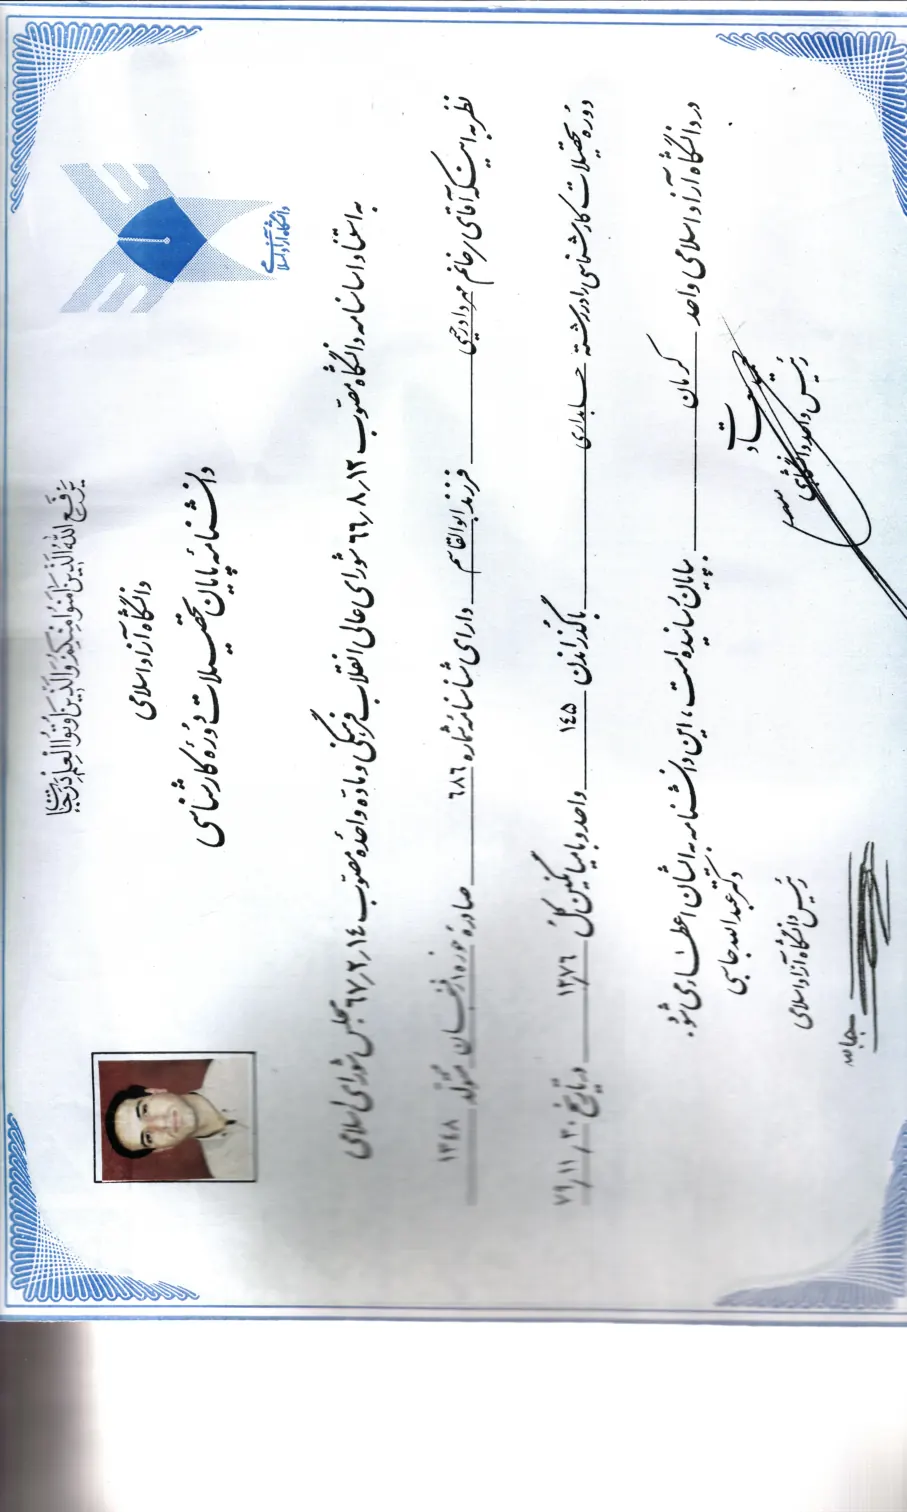 یَرفَعِ اللهُ الَّذینَ آمَنوا مِنکُم وَالَّذینَ اوتُوا العِلمَ دَرَجات
دانشگاه آزاد اسلامی
دانشگاه آزاد اسلامی
دانشنامهٔ پایان تحصیلات دورهٔ کارشناسی
به استناد اساسنامه دانشگاه مصوب ۶۶٫۸٫۱۲ شورای عالی انقلاب فرهنگی و ماده واحدهٔ مصوب ۶۷٫۲٫۱۴ مجلس شورای اسلامی
نظر به اینکه آقای / خانم فرزند ابوالقاسم دارای شناسنامه شماره ۶۸۶ صادره حوزه متولد ۱۳۴۸
دورهٔ تحصیلات کارشناسی را در رشته حسابداری با گذراندن ۱۴۵ واحد و با میانگین کل ۱۳٫۷۶ در تاریخ ۷۹٫۱۱٫۳۰
در دانشگاه آزاد اسلامی واحد کرمان بپایان رسانیده است، این دانشنامه به ایشان اعطا می شود.
رئیس واحد دانشگاهی
دکتر عبدالله جاسبی
رئیس دانشگاه آزاد اسلامی